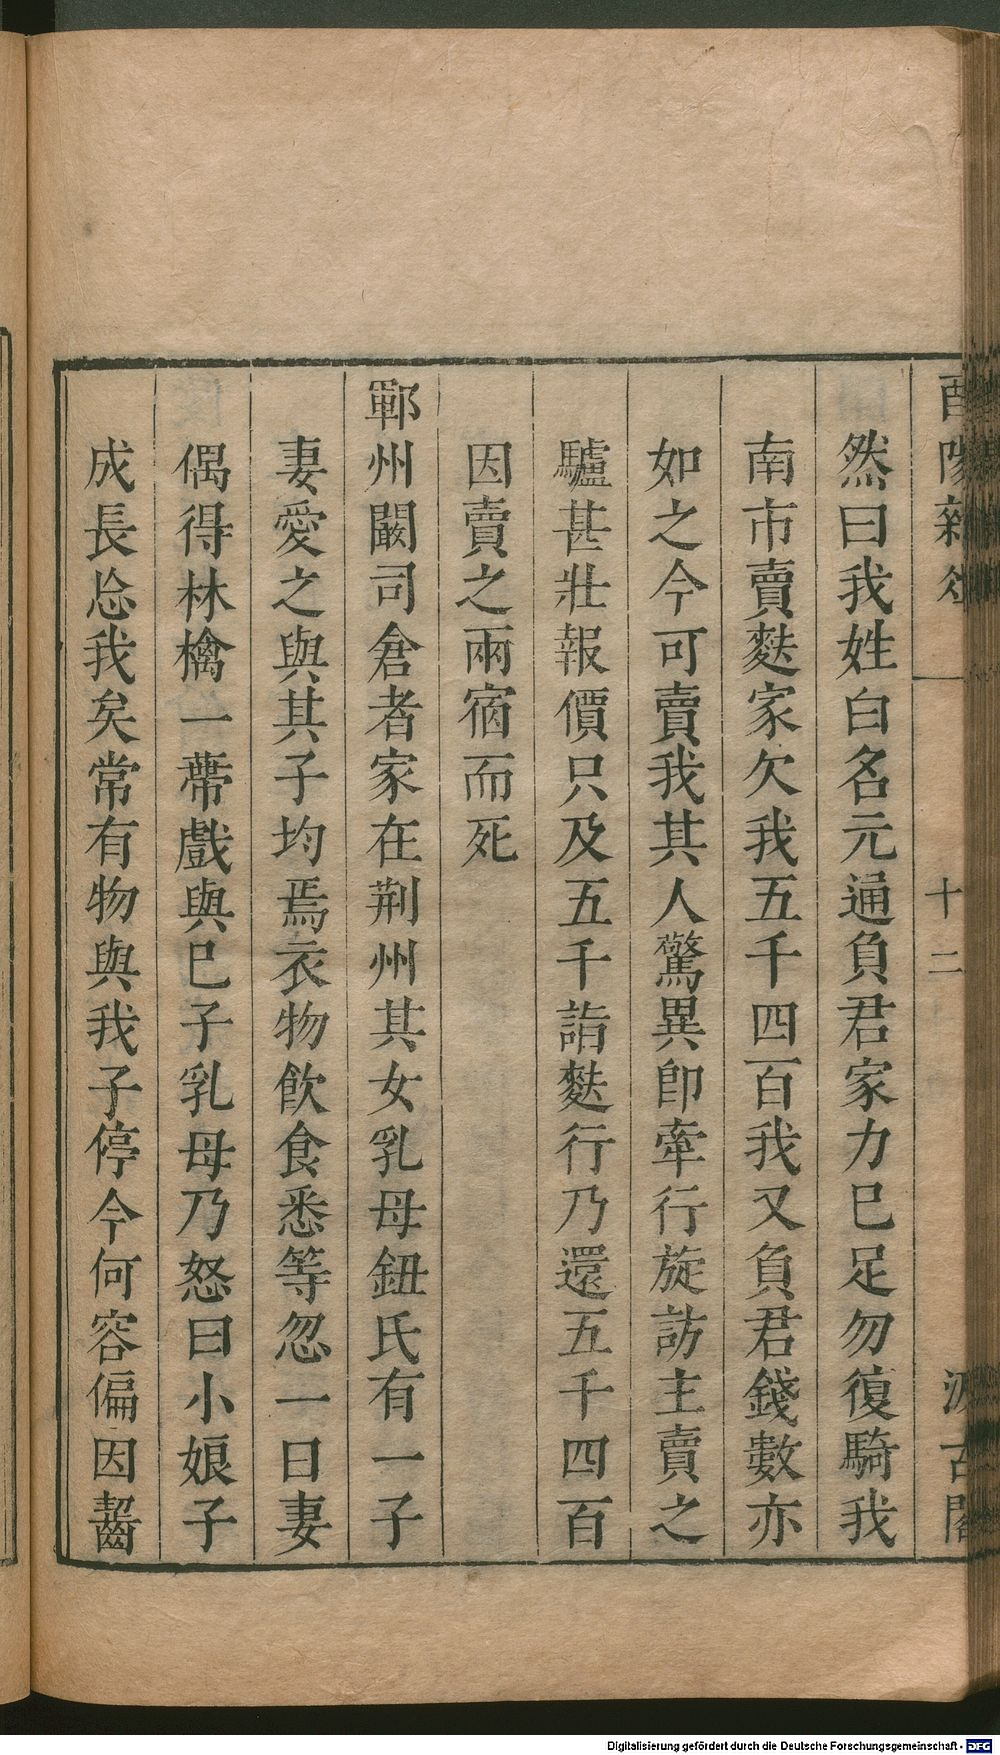 酉陽雜俎
十二
汲古閣
然曰我姓白名元通負君家力巳足勿復騎我
南市賣麩家欠我五千四百我又負君錢數亦
如之今可賣我其人驚異卽牽行旋訪主賣之
驢甚壯報價只及五千詣麩行乃還五千四百
因賣之兩宿而死
鄆州闞司倉者家在荆州其女乳母鈕氏有一子
妻愛之與其子均焉衣物飮食悉等忽一日妻
偶得林檎一蔕戲與巳子乳母乃怒曰小娘子
成長忩我矣常有物與我子停今何容偏因齧
Digitalisierung gefördert durch die Deutsche Forschungsgemeinschaft - DFG